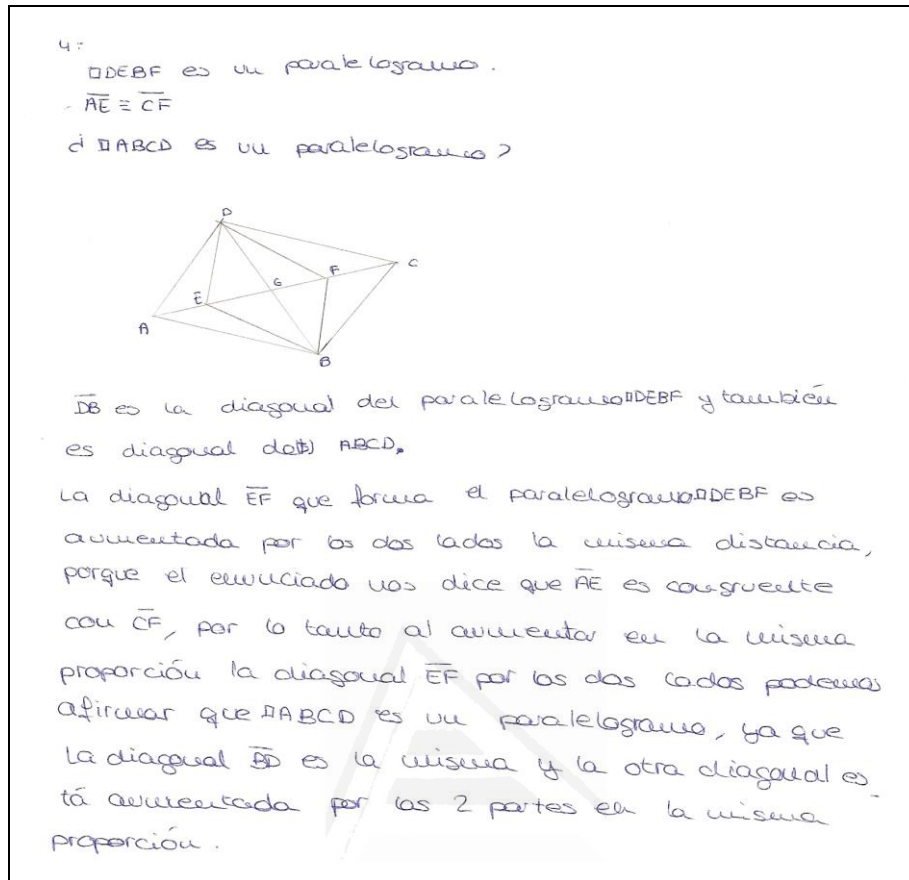 4:
□DEBF es un paralelogramo.
- AE ≡ CF
¿ □ABCD es un paralelogramo?
D
C
F
G
E
A
B
DB es la diagonal del paralelogramo □DEBF y también
es diagonal de ABCD.
La diagonal EF que forma el paralelogramo □DEBF es
aumentada por los dos lados la misma distancia,
porque el enunciado nos dice que AE es congruente
con CF, por lo tanto al aumentar en la misma
proporción la diagonal EF por los dos lados podemos
afirmar que □ABCD es un paralelogramo, ya que
la diagonal BD es la misma y la otra diagonal es
tá aumentada por las 2 partes en la misma
proporción.